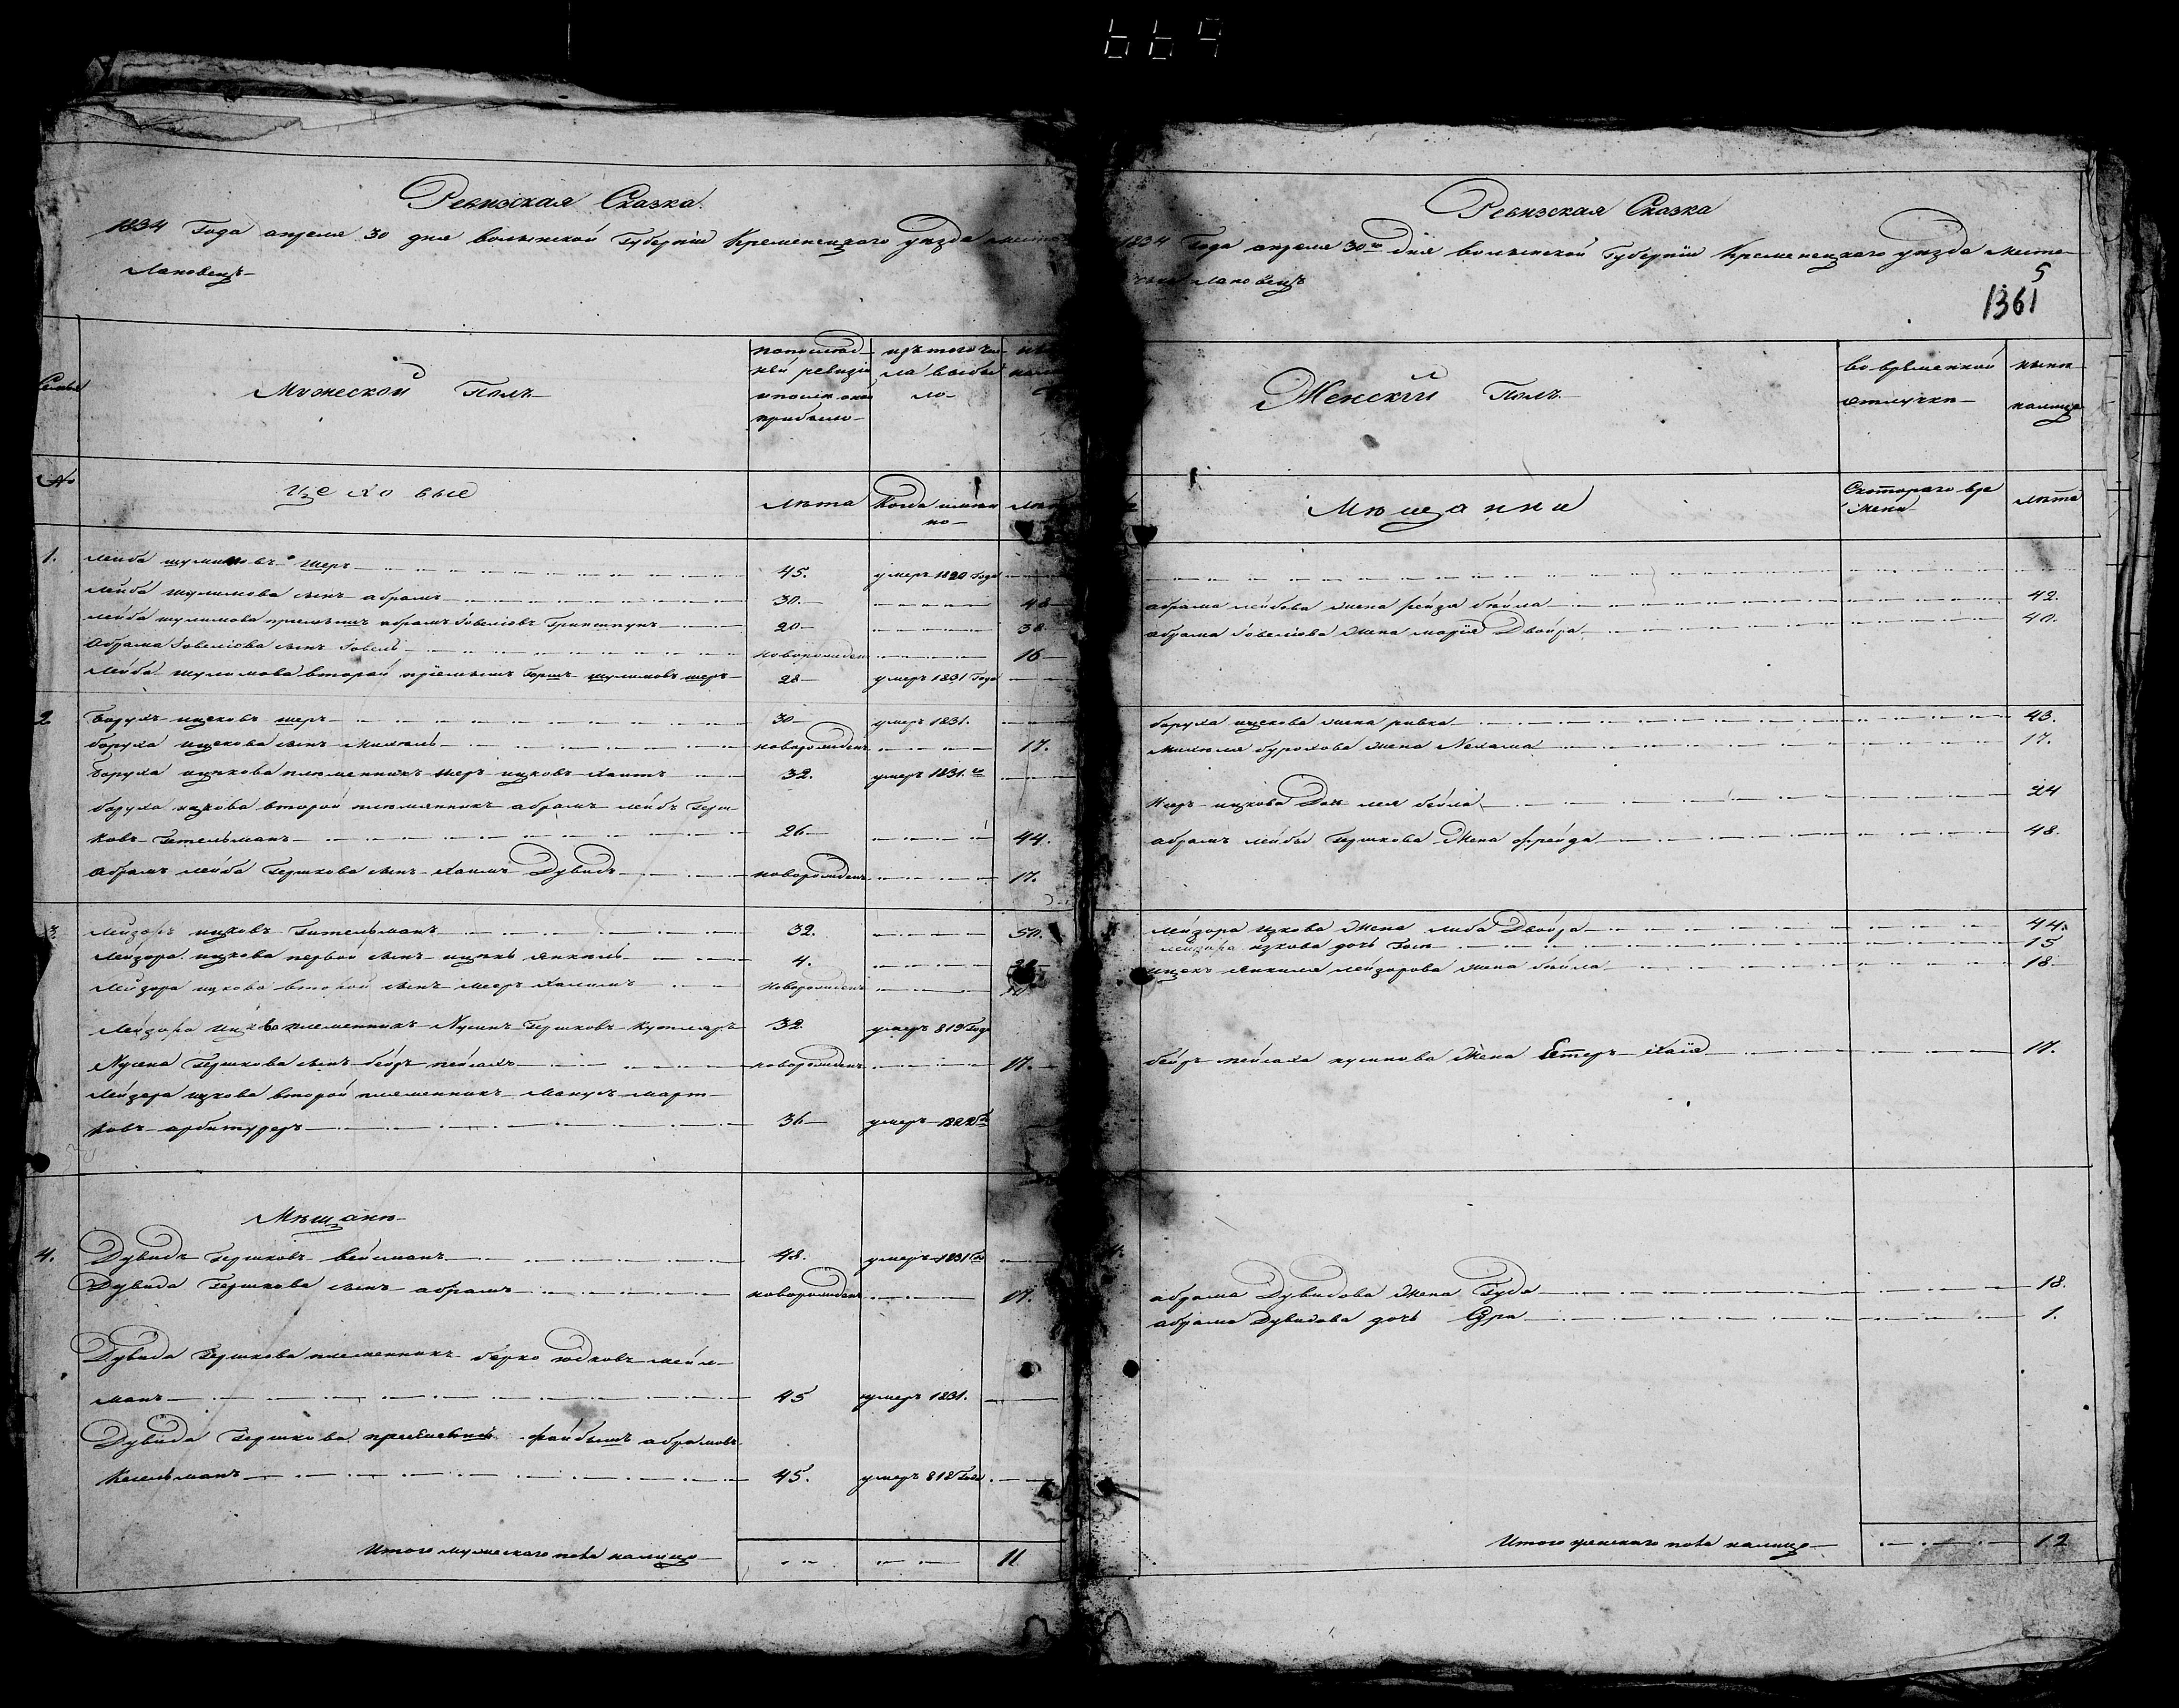 669
Ревизская Сказка.
1834 Года апреля 30 дня волынской Губернiи Кременецкаго уезда места
Лановец
Семьи
Мужеской Полъ
попослед
ней ревизiи
и после оной
прибыло
изъ того чи
сла выбы
ло
№
Цеховые
Лета
Когда имен
но
Лет
1. Лейба шулимовъ шеръ 45. умеръ 1820 Года
Лейба шулимова сынъ абрамъ 30. 48
Лейба шулимова приемышъ абрамъ Iовелiовъ Гринштунъ 20 38
Абрама Iовелiова сынъ Iовель новорожден 16
Лейба шулимова второй прiемышъ Гершъ шулимовъ шеръ 28 умеръ 1831 Года
2 Борухъ ицковъ шеръ 30 умеръ 1831.
боруха ицкова сынъ Михель новорожденъ 17.
Боруха ицкова племенникъ Меръ ицковъ хаитъ 32. умеръ 1831.
боруха ицкова второй племянникъ абрамъ лейбъ Герш
ковъ Гительманъ 26 44.
Абрамъ лейба Гершкова сынъ Хаимъ Дувидъ новорожденъ 17.
3. Лейзоръ ицковъ Гительманъ 32. 50.
Лейзора ицкова первой сынъ ицикъ янкель 4.
Лейзора ицкова второй сынъ меоръ новорожденъ
Лейзора ицкова племенникъ Нусинъ Гершковъ 32 умеръ 819 Года
Нусена Гершкова сынъ беръ пейсахъ новорожденъ 17.
Лейзора ицкова второй племенникъ Манусъ март
ковъ арбитуреръ 36 умеръ 1822
Мещане
4. Дувидъ Гершковъ вейсманъ 48. умеръ 1831
Дувида Гершкова сынъ абрамъ новорожденъ 17.
Дувида Гершкова племенникъ берко юдковъ
манъ 45 умеръ 1831.
Дувида Гершкова прiемышъ файбышъ абрамовъ
Кесельманъ 45. умеръ 818 Года
Итого мужескаго пола налицо 11
Ревизская Сказка
1834 Года апреля 30го дня волынской Губернiи Кременецкаго уезда Месте
чка Лановецъ
5
1361
Женскiй Полъ
во временной
отлучки
ныне
налицо
Мещанки
Скотораго вре
мени
лета
абрама лейбова жена рейзя бейла 42.
абрама Iовелiова жена марiя Двойра 40.
боруха ицкова жена ривка 43.
михеля бурохова жена Нехама 17.
Меръ ицкова Дочь лея бейла 24
абрамъ лейбы Гершкова Жена фрейда 48.
Лейзора ицкова Жена либа Двойра 44.
лейзора ицкова дочь 15
ицекъ янкеля лейзорова жена бейла 18
беръ пейсаха нусинова Жена Естеръ хаiя 17.
абрама Дувидова Жена Гуда 18.
абрама Дувидова дочь Сура 1.
Итого женскаго пола налицо 12